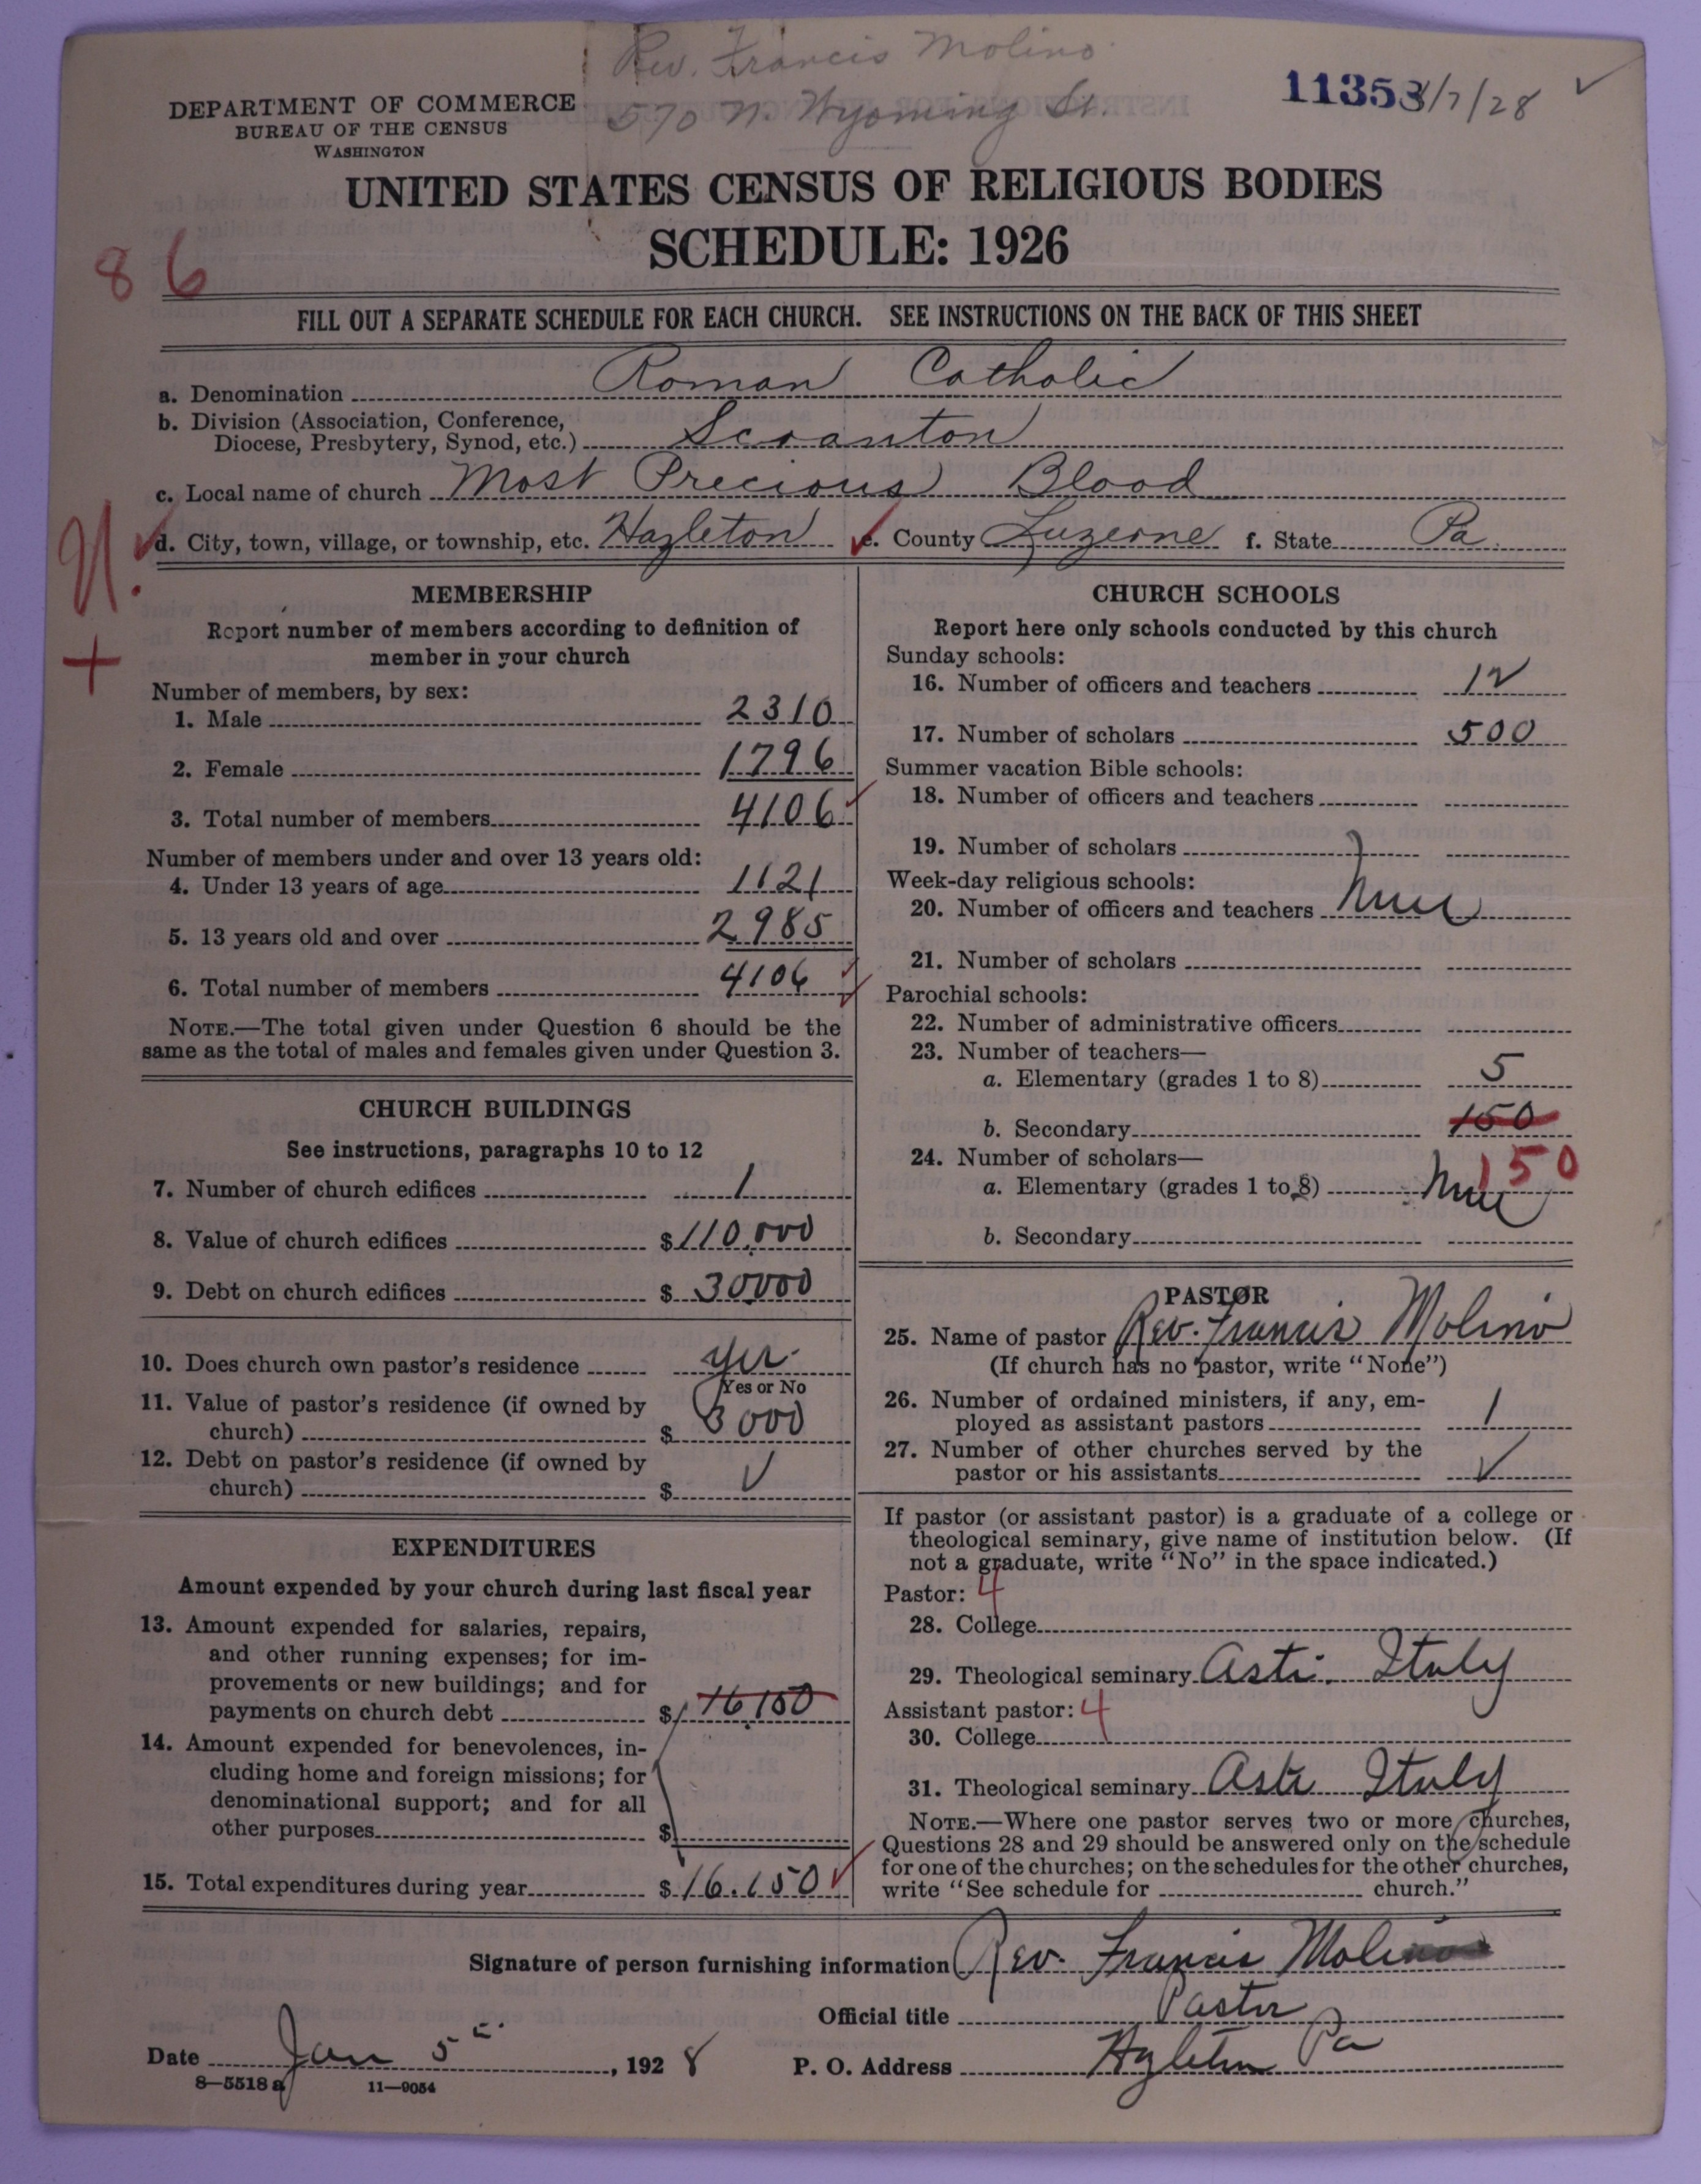 Rev. Francis Molino
570 N. Wyoming St.
11353 1/7/28 ✓
DEPARTMENT OF COMMERCE
BUREAU OF THE CENSUS
WASHINGTON
UNITED STATES CENSUS OF RELIGIOUS BODIES
SCHEDULE: 1926
86
FILL OUT A SEPARATE SCHEDULE FOR EACH CHURCH. SEE INSTRUCTIONS ON THE BACK OF THIS SHEET
a. Denomination Roman Catholic
b. Division (Association, Conference,
Diocese, Presbytery, Synod, etc.) Scranton
c. Local name of church Most Precious Blood
d. City, town, village, or township, etc. Hazleton e. County Luzerne f. State Pa.
U.
+
MEMBERSHIP
Report number of members according to definition of
member in your church
Number of members, by sex:
1. Male 2310
2. Female 1796
3. Total number of members 4106 ✓
Number of members under and over 13 years old:
4. Under 13 years of age 1121
5. 13 years old and over 2985
6. Total number of members 4106 ✓
NOTE.—The total given under Question 6 should be the
same as the total of males and females given under Question 3.
CHURCH BUILDINGS
See instructions, paragraphs 10 to 12
7. Number of church edifices 1
8. Value of church edifices $110,000
9. Debt on church edifices $30000
10. Does church own pastor's residence yes
Yes or No
11. Value of pastor's residence (if owned by
church) $8000
12. Debt on pastor's residence (if owned by
church) $ ✓
EXPENDITURES
Amount expended by your church during last fiscal year
13. Amount expended for salaries, repairs,
and other running expenses; for im-
provements or new buildings; and for
payments on church debt $16,150
14. Amount expended for benevolences, in-
cluding home and foreign missions; for
denominational support; and for all
other purposes $
15. Total expenditures during year $16.150 ✓
CHURCH SCHOOLS
Report here only schools conducted by this church
Sunday schools:
16. Number of officers and teachers 12
17. Number of scholars 500
Summer vacation Bible schools:
18. Number of officers and teachers
19. Number of scholars
Week-day religious schools:
20. Number of officers and teachers None
21. Number of scholars
Parochial schools:
22. Number of administrative officers
23. Number of teachers—
a. Elementary (grades 1 to 8) 5
b. Secondary 150
24. Number of scholars— 150
a. Elementary (grades 1 to 8) None
b. Secondary
PASTOR
25. Name of pastor Rev. Francis Molino
(If church has no pastor, write "None")
26. Number of ordained ministers, if any, em-
ployed as assistant pastors 1
27. Number of other churches served by the
pastor or his assistants ✓
If pastor (or assistant pastor) is a graduate of a college or
theological seminary, give name of institution below. (If
not a graduate, write "No" in the space indicated.)
Pastor: 4
28. College
29. Theological seminary Asti. Italy
Assistant pastor: 4
30. College
31. Theological seminary Asti Italy
NOTE.—Where one pastor serves two or more churches,
Questions 28 and 29 should be answered only on the schedule
for one of the churches; on the schedules for the other churches,
write "See schedule for church."
Signature of person furnishing information Rev. Francis Molino
Official title Pastor
Date Jan 5, 1928 P. O. Address Hazleton Pa
8—5518 a 11—9054